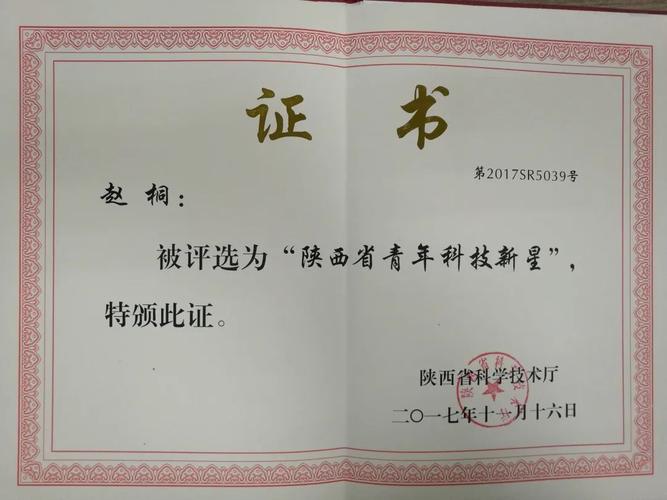 证书
第2017SR5039号
赵桐：
被评选为“陕西省青年科技新星”，
特颁此证。
陕西省科学技术厅
二〇一七年十一月十六日